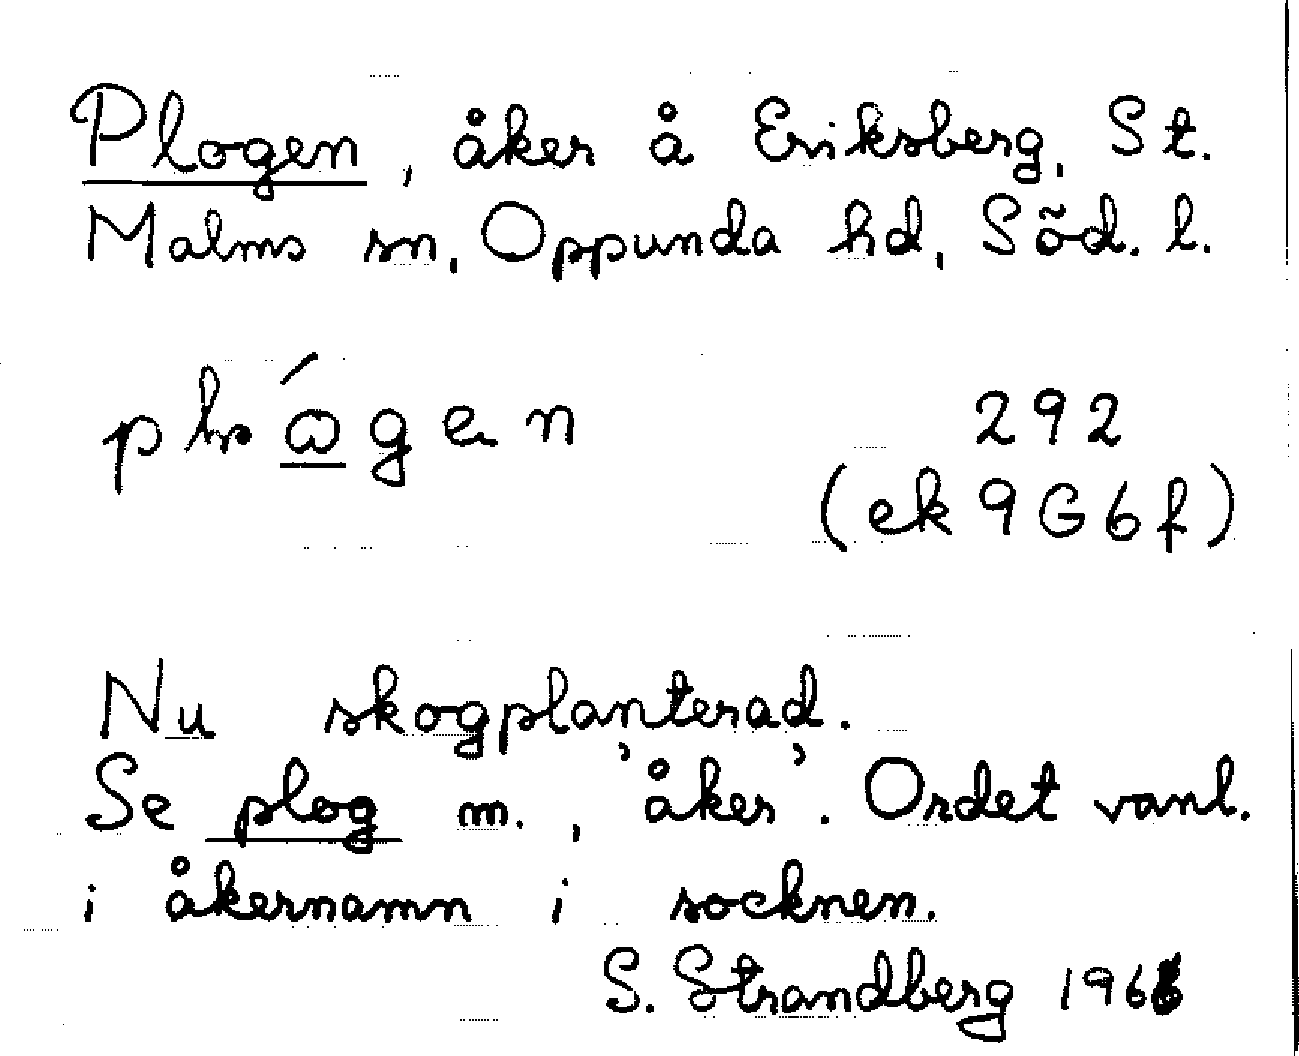 Plogen, åker å Eriksberg, St.
Malms sn, Oppunda hd, Söd. l.
292
(ek 9G6f)
Nu skogplanterad.
Se plog m., 'åker'. Ordet vanl.
i åkernamn i socknen.
S. Strandberg